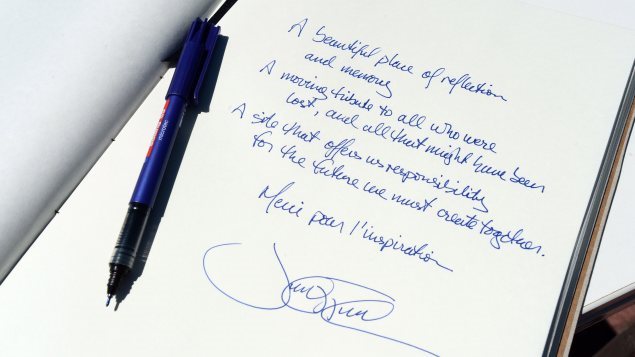 A beautiful place of reflection
and memory
A moving tribute to all who were
lost, and all that might have been
A site that offers us responsibility
for the future we must create together.
Merci pour l'inspiration